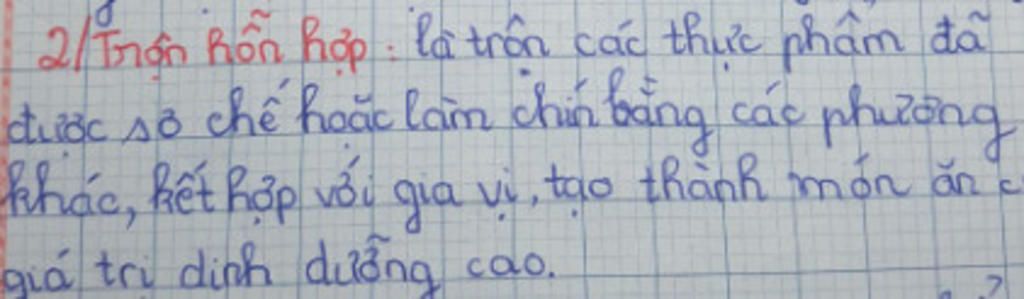 2/ Trộn hỗn hợp: là trộn các thực phẩm đã
được sơ chế hoặc làm chín bằng các phương
khác, kết hợp với gia vị, tạo thành món ăn c
giá trị dinh dưỡng cao.